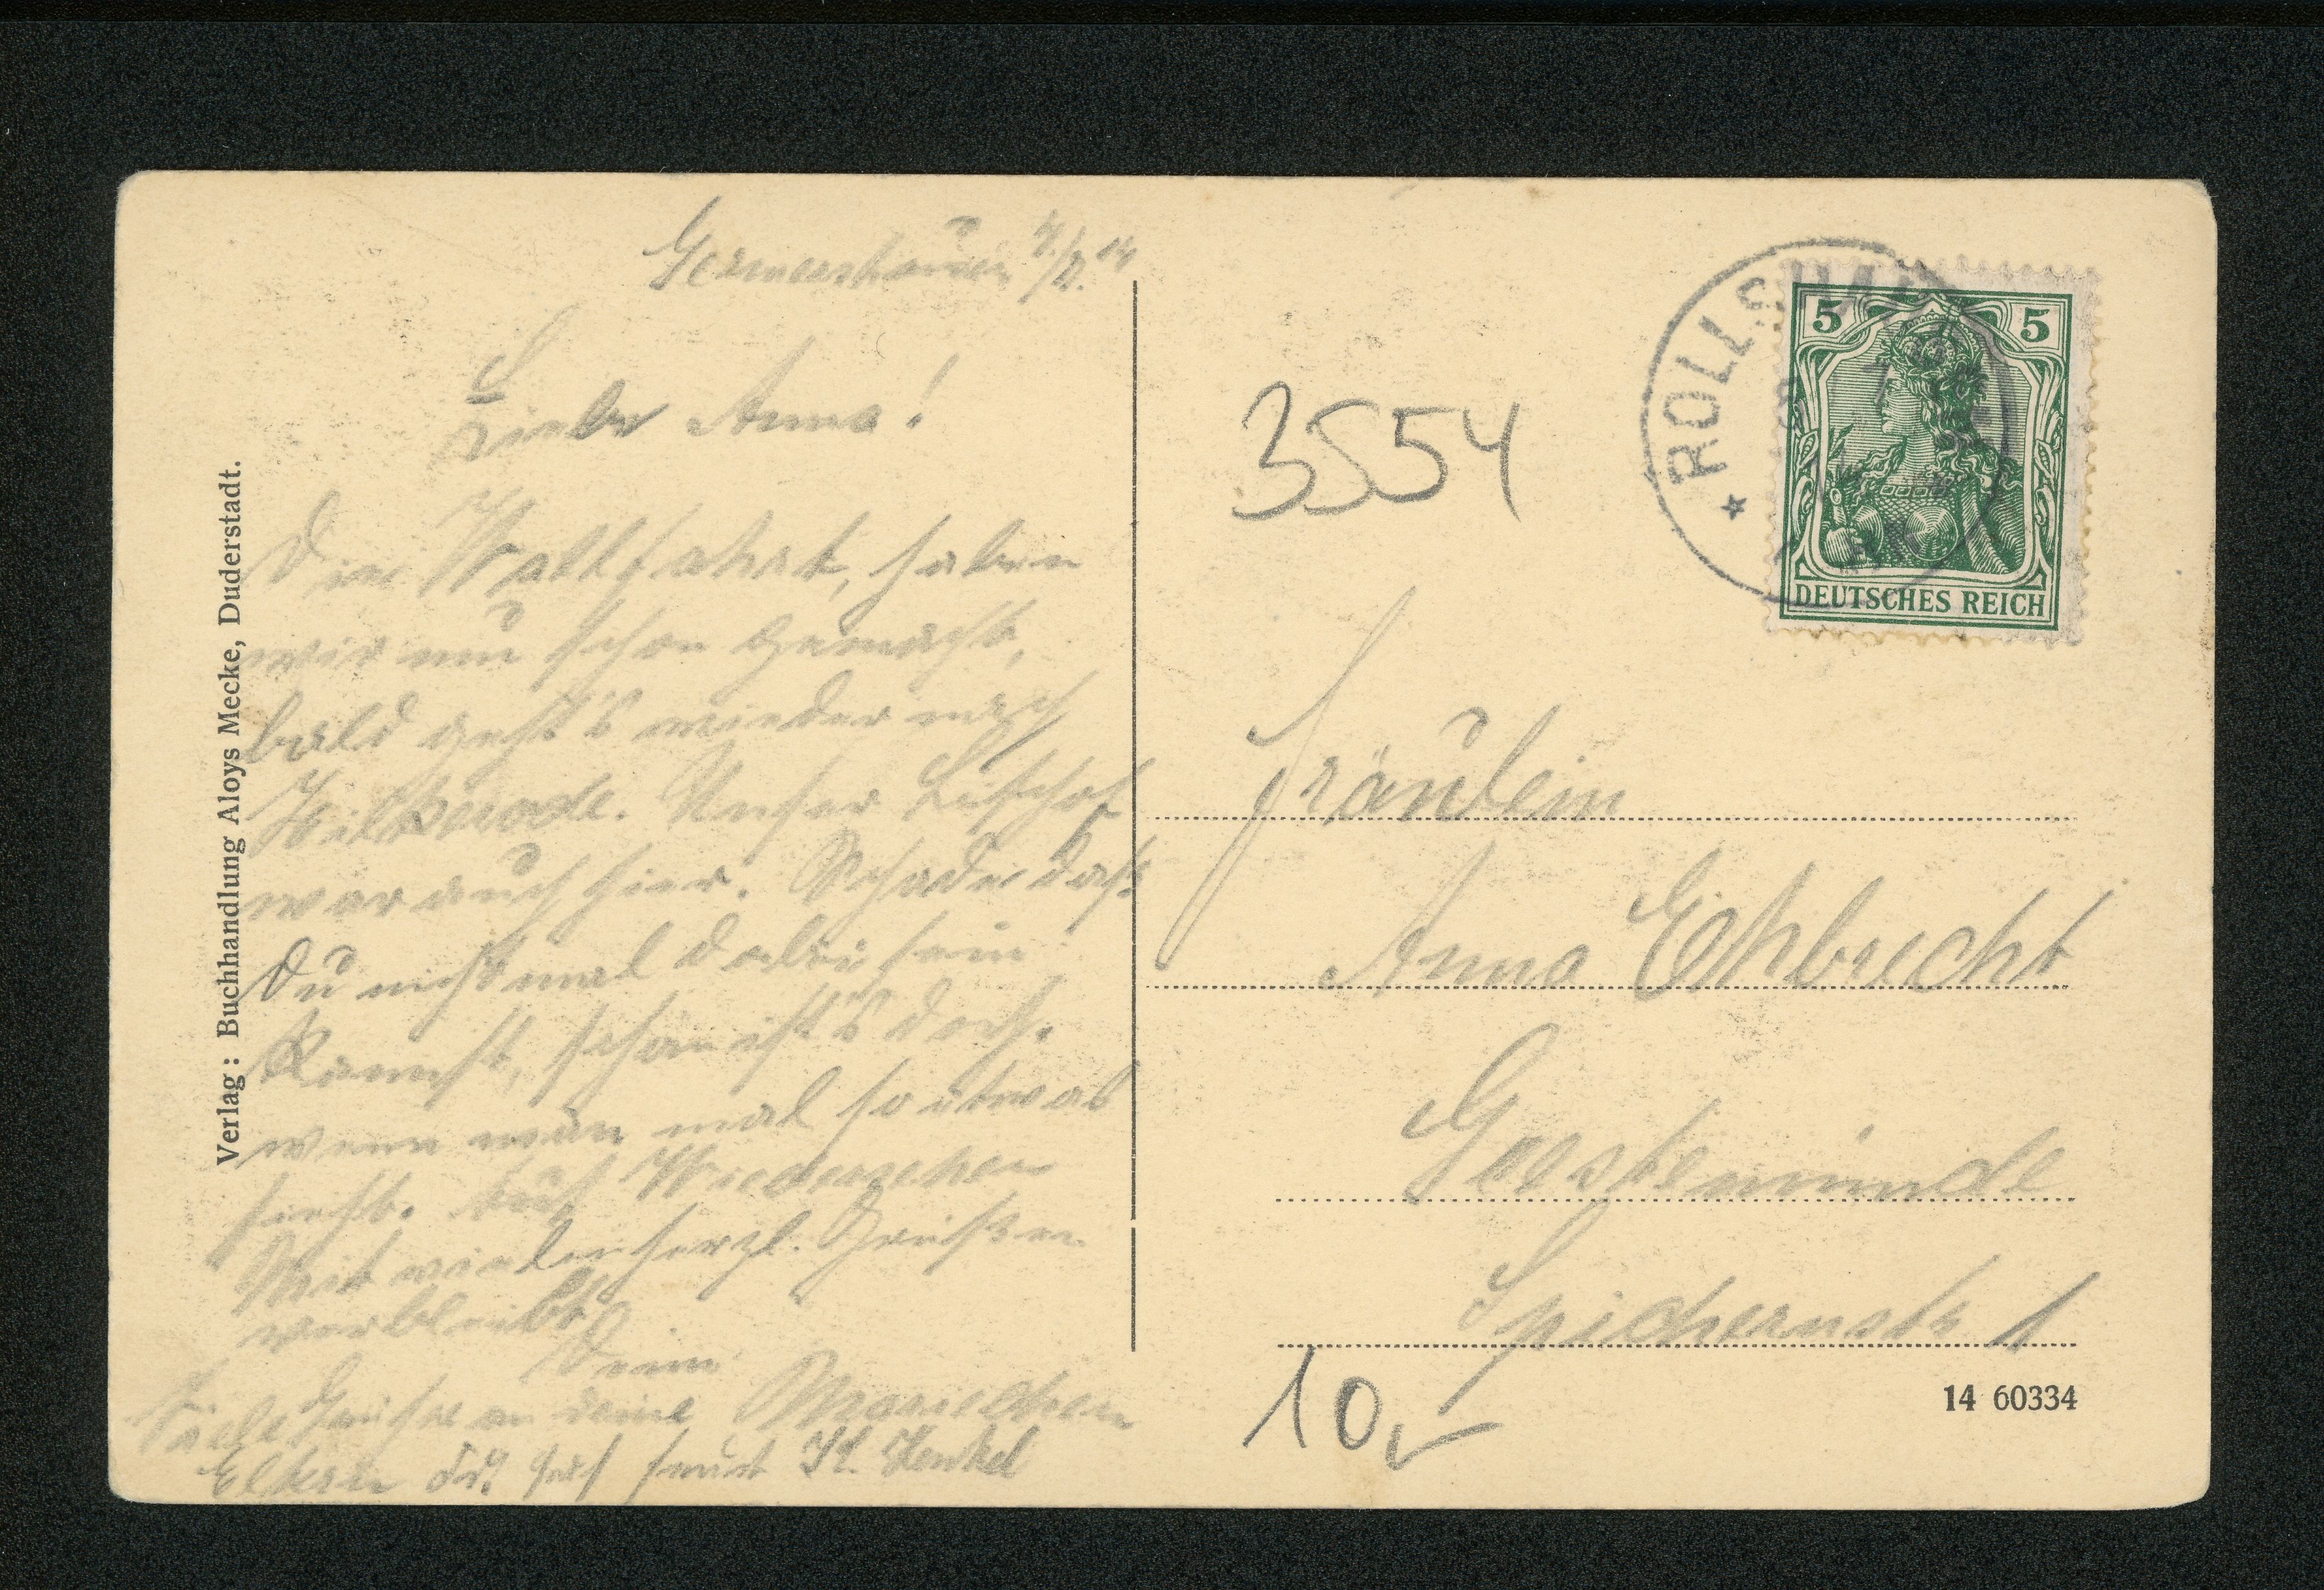 Germershausen 7/7. 14
Liebe Anna!
Die Wallfahrt, haben
wir nun schon gemacht,
bald geht's wieder nach
Hilkerode. Unser Bischof
war auch hier. Schade daß
Du nicht mal dabei sein
kannst, schön ist's doch.
wenn man mal so etwas
sieht. Auf Wiedersehen
Mit vielen herzl. Grüßen
verbleibt
Dein
Mariechen
Viele Grüße an deine
Eltern
Henkel
Verlag: Buchhandlung Aloys Mecke, Duderstadt.
3554
ROLLSHAUSEN
5 5
DEUTSCHES REICH
Fräulein
Anna Ehbrecht
Geestemünde
Spichernstr 1
10,-
14 60334